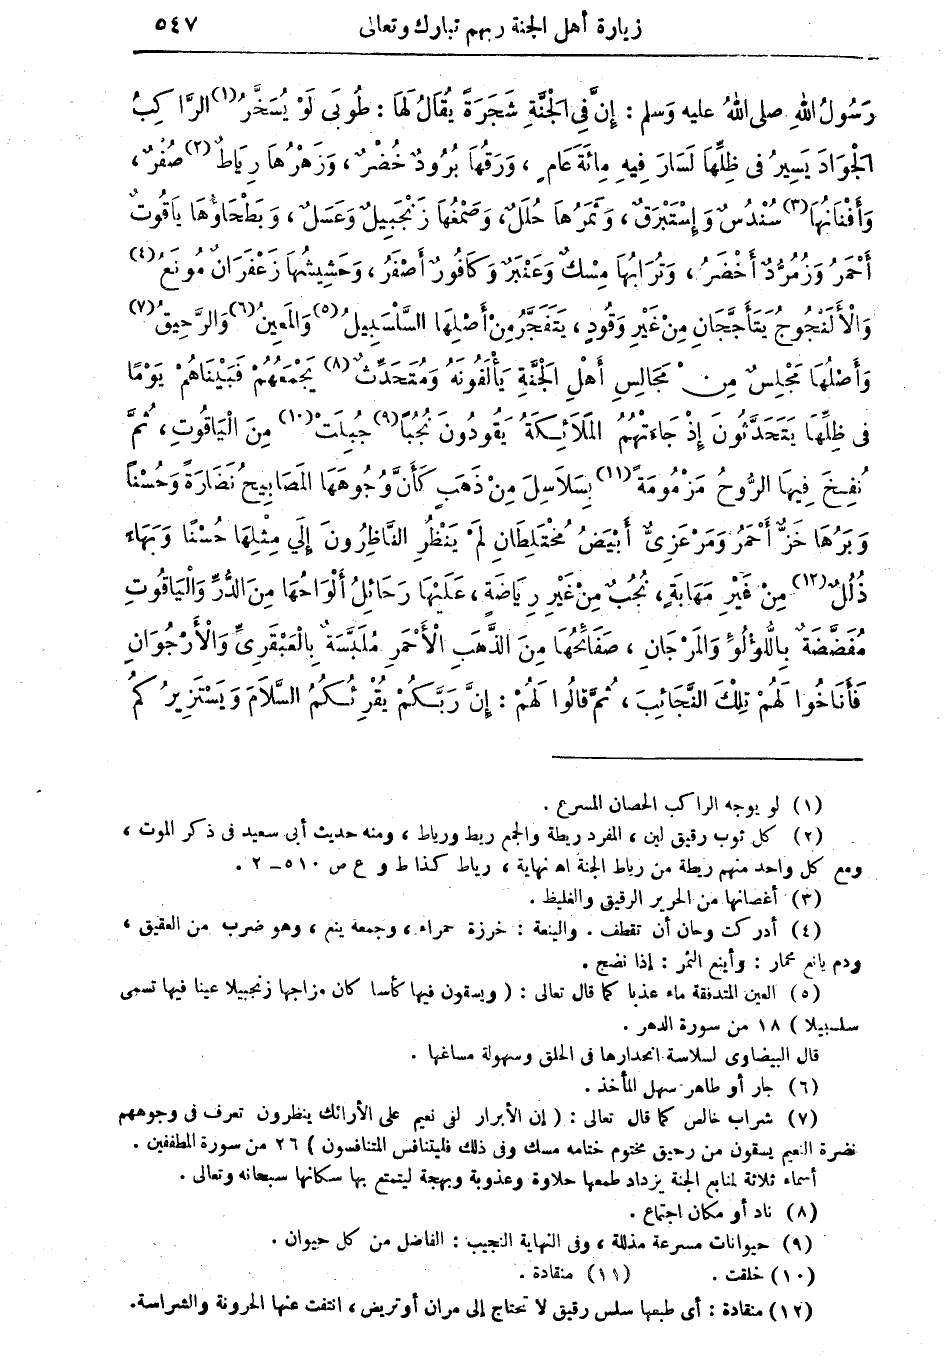 زيارة أهل الجنة ربهم تبارك وتعالى ٥٤٧
رَسُولُ اللهِ صلى اللهُ عليه وَسلم : إِنَّ فِى الْجَنَّةِ شَجَرَةً يُقَالُ لَهَا : طُوبَى لَوْ يُسَخَّرُ(١) الرَّاكِبُ
الْجَوَادَ يَسِيرُ فى ظِلِّهَا لَسَارَ فِيهِ مِائَةَ عَامٍ ، وَرَقُهَا بُرُودٌ خُضْرٌ ، وَزَهْرُهَا رِيَاطٌ(٢) صُفْرٌ ،
وَأَفْنَانُهَا(٣) سُنْدُسٌ وَإِسْتَبْرَقٌ ، وَثَمَرُهَا حُلَلٌ ، وَصَمْغُهَا زَنْجَبِيلٌ وَعَسَلٌ ، وَبَطْحَاؤُهَا يَاقُوتٌ
أَحْمَرُ وَزُمُرُّدٌ أَخْضَرُ ، وَتُرَابُهَا مِسْكٌ وَعَنْبَرٌ وَكَافُورٌ أَصْفَرُ ، وَحَشِيشُهَا زَعْفَرَانٌ مُونَعٌ(٤)
وَالْأَلَنْجُوجُ يَتَأَجَّجَانِ مِنْ غَيْرِ وَقُودٍ ، يَتَفَجَّرُ مِنْ أَصْلِهَا السَّلْسَبِيلُ(٥) وَالْمَعِينُ(٦) وَالرَّحِيقُ(٧)
وَأَصْلُهَا مَجْلِسٌ مِنْ مَجَالِسِ أَهْلِ الْجَنَّةِ يَأْلَفُونَهُ وَمُتَحَدَّثٌ(٨) يَجْمَعُهُمْ فَبَيْنَاهُمْ يَوْمًا
فى ظِلِّهَا يَتَحَدَّثُونَ إِذْ جَاءَتْهُمُ الْمَلَائِكَةُ يَقُودُونَ نُجُبًا(٩) جُبِلَتْ(١٠) مِنَ الْيَاقُوتِ ، ثُمَّ
نُفِخَ فِيهَا الرُّوحُ مَزْمُومَةً(١١) بِسَلَاسِلَ مِنْ ذَهَبٍ كَأَنَّ وُجُوهَهَا الْمَصَابِيحُ نَضَارَةً وَحُسْنًا
وَبَرُهَا خَزٌّ أَحْمَرُ وَمَرْعَزِىٌّ أَبْيَضُ مُخْتَلِطَانِ لَمْ يَنْظُرِ النَّاظِرُونَ إِلَى مِثْلِهَا حُسْنًا وَبَهَاء
ذُلُلٌ(١٢) مِنْ غَيْرِ مَهَابَةٍ ، نُجُبٌ مِنْ غَيْرِ رِيَاضَةٍ ، عَلَيْهَا رَحَائِلُ أَلْوَاحُهَا مِنَ الدُّرِّ وَالْيَاقُوتِ
مُفَضَّضَةٌ بِاللُّؤْلُؤِ وَالْمَرْجَانِ ، صَفَائِحُهَا مِنَ الذَّهَبِ الْأَحْمَرِ مُلَبَّسَةٌ بِالْعَبْقَرِىِّ وَالْأَرْجُوَانِ
فَأَنَاخُوا لَهُمْ تِلْكَ النَّجَائِبَ ، ثُمَّ قَالُوا لَهُمْ : إِنَّ رَبَّكُمْ يُقْرِئُكُمُ السَّلَامَ وَيَسْتَزِيرُكُمْ
(١) لو يوجه الراكب الحصان المسرع .
(٢) كل ثوب رقيق لين ، المفرد ريطة والجمع ريط ورياط ، ومنه حديث أبى سعيد فى ذكر الموت ،
ومع كل واحد منهم ريطة من رياط الجنة اه نهاية ، رياط كذا ط و ع ص ٥١٠ – ٢ .
(٣) أغصانها من الحرير الرقيق والغليظ .
(٤) أدركت وحان أن تقطف . والينعة : خرزة حمراء ، وجمعه ينع ، وهو ضرب من العقيق ،
ودم يانع محمار : وأينع الثمر : إذا نضج .
(٥) العين المتدفقة ماء عذبا كما قال تعالى : ( ويسقون فيها كأسا كان مزاجها زنجبيلا عينا فيها تسمى
سلسبيلا ) ١٨ من سورة الدهر .
قال البيضاوى لسلاسة انحدارها فى الحلق وسهولة مساغها .
(٦) جار أو طاهر سهل المأخذ .
(٧) شراب خالص كما قال تعالى : ( إن الأبرار لفى نعيم على الأرائك ينظرون تعرف فى وجوههم
نضرة النعيم يسقون من رحيق مختوم ختامه مسك وفى ذلك فليتنافس المتنافسون ) ٢٦ من سورة المطففين .
أسماء ثلاثة لمنابع الجنة يزداد طعمها حلاوة وعذوبة وبهجة ليتمتع بها سكانها سبحانه وتعالى .
(٨) ناد أو مكان اجتماع .
(٩) حيوانات مسرعة مذللة ، وفى النهاية النجيب : الفاضل من كل حيوان .
(١٠) خلقت . (١١) منقادة .
(١٢) منقادة : أى طبعها سلس رقيق لا تحتاج إلى مران أو تريض ، انتفت عنها الحرونة والشراسة.